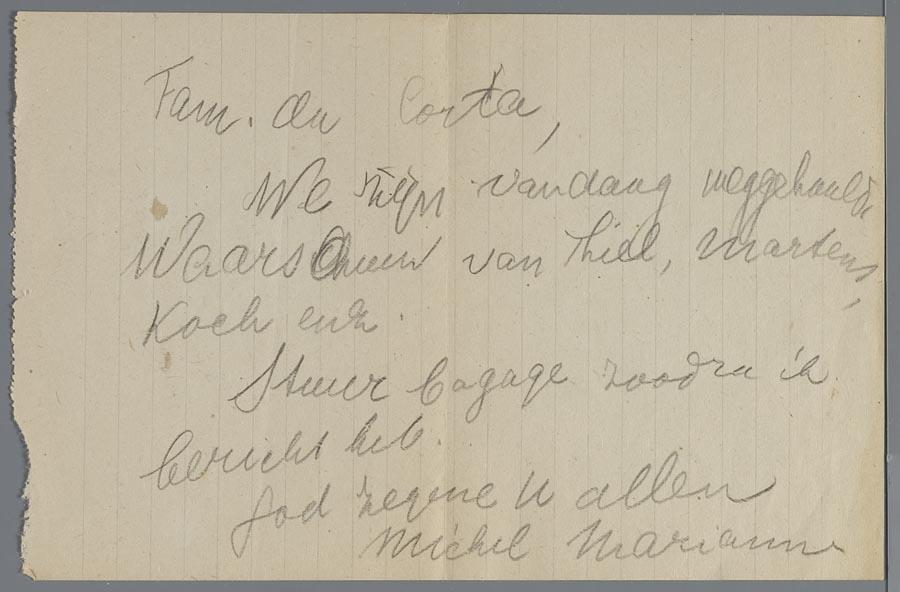 Fam. da Costa,
We zijn vandaag weggehaald
Waarschuw van Tiel, Martens,
Koch enz.
Stuur bagage zoodra ik
bericht heb.
God zegene U allen
Michel Marianne